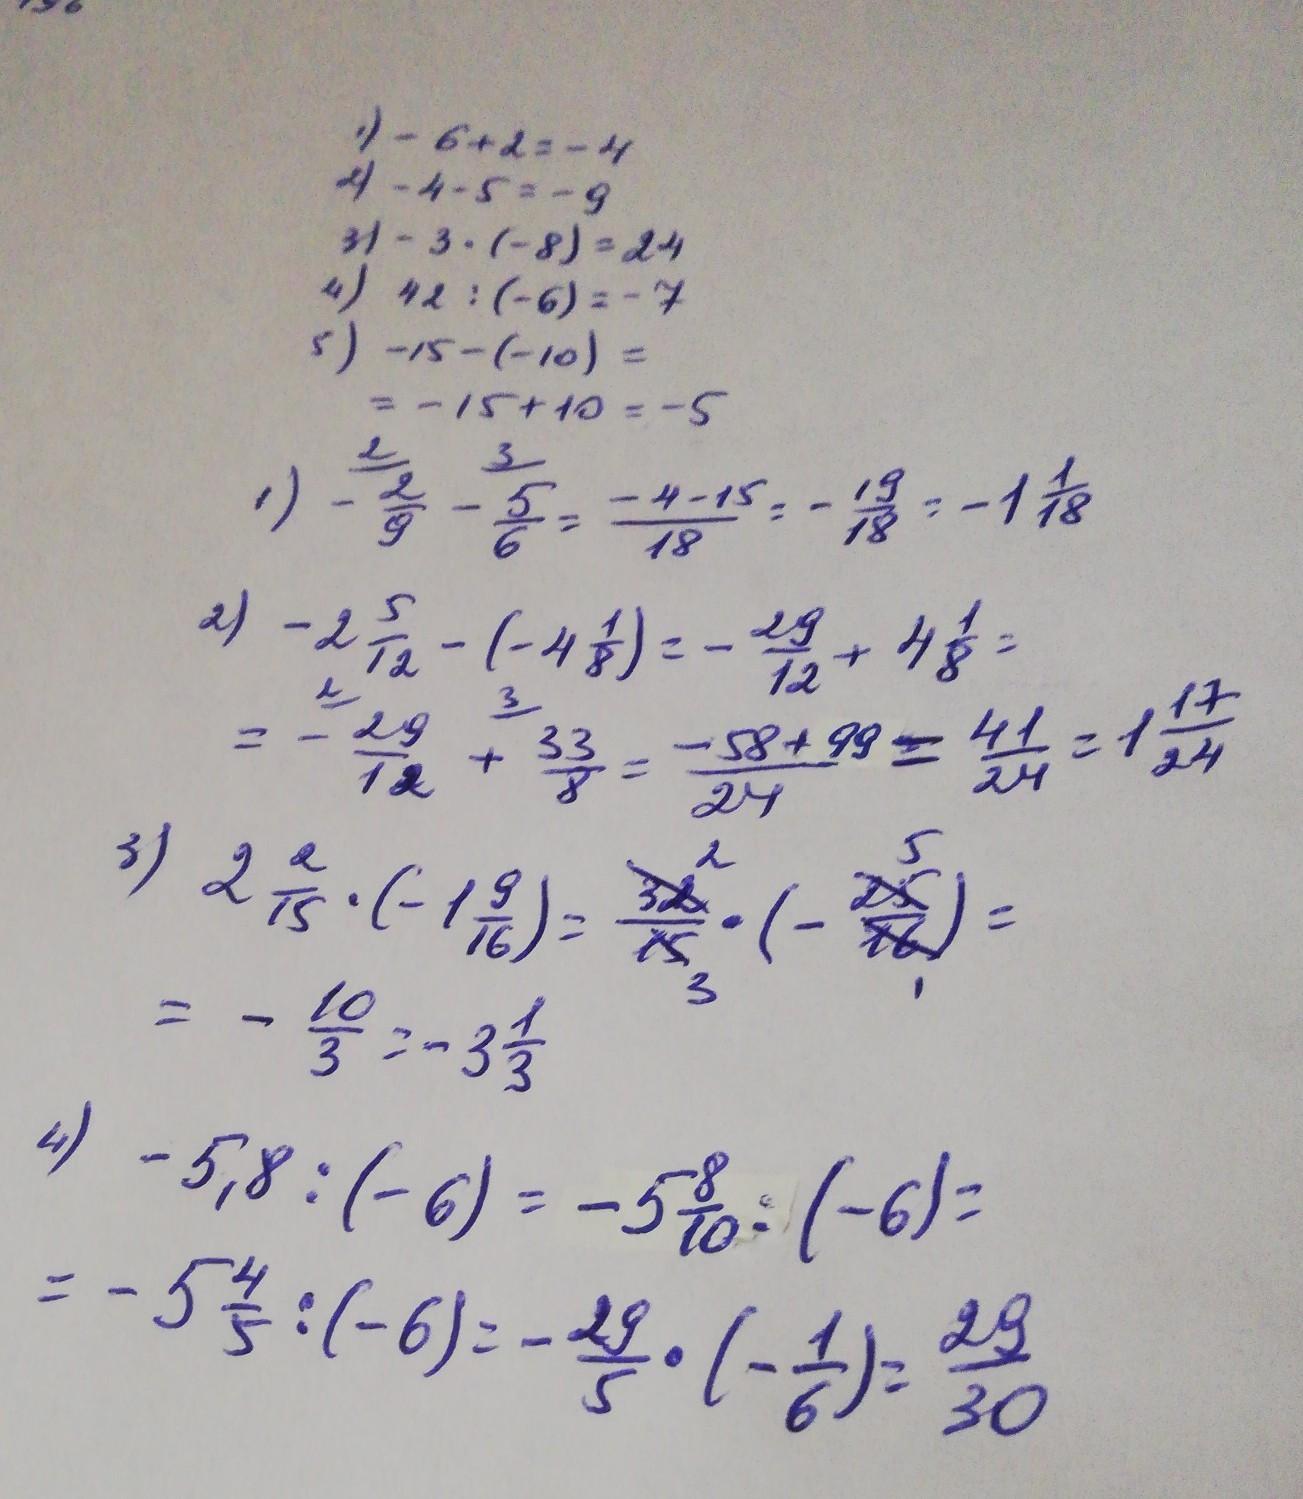 1) - 6 + 2 = - 4
2) - 4 - 5 = - 9
3) - 3 · (-8) = 24
4) 42 : (-6) = - 7
5) -15 - (-10) =
= -15 + 10 = -5
1) - 2/9 (2) - 5/6 (3) = (-4-15)/18 = - 19/18 = - 1 1/18
2) - 2 5/12 - (- 4 1/8) = - 29/12 + 4 1/8 =
= - 29/12 (2) + 33/8 (3) = (-58 + 99)/24 = 41/24 = 1 17/24
3) 2 2/15 · (- 1 9/16) = 32/15 (2/3) · (- 25/16 (5/1)) =
= - 10/3 = - 3 1/3
4) - 5,8 : (- 6) = - 5 8/10 : (- 6) =
= - 5 4/5 : (- 6) = - 29/5 · (- 1/6) = 29/30